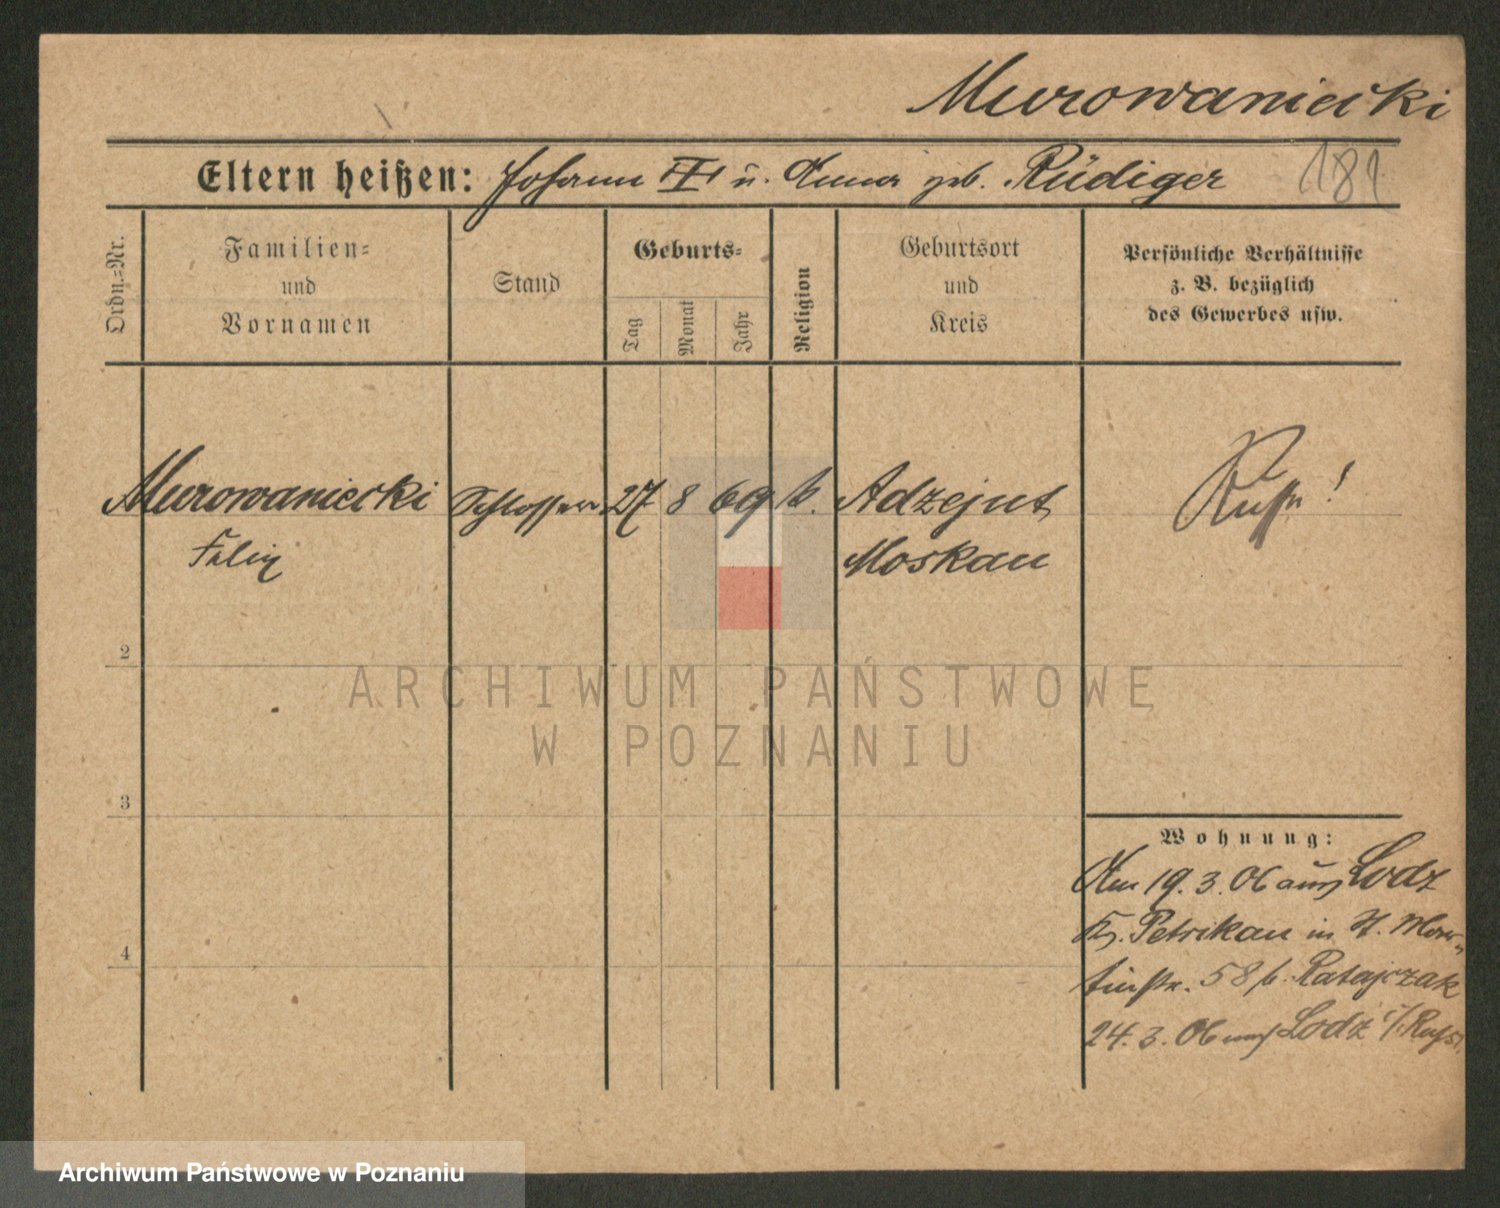 Murowaniecki
Eltern heißen: Johann u. Anna geb. Rüdiger 181
Ordn.=Nr.
Familien=
und
Vornamen
Stand
Geburts=
Tag
Monat
Jahr
Religion
Geburtsort
und
Kreis
Persönliche Verhältnisse
z. B. bezüglich
des Gewerbes usw.
Murowaniecki Schlosser 27 8 69 k. Adzejut Russe!
Felix Moskau
2
ARCHIWUM PAŃSTWOWE
W POZNANIU
3
Wohnung:
Am 19. 3. 06 aus Lodz
Kr. Petrikau in St. Mar-
tinstr. 58 b. Ratajczak
4
24. 3. 06 nach Lodz i/ Russl.
Archiwum Państwowe w Poznaniu